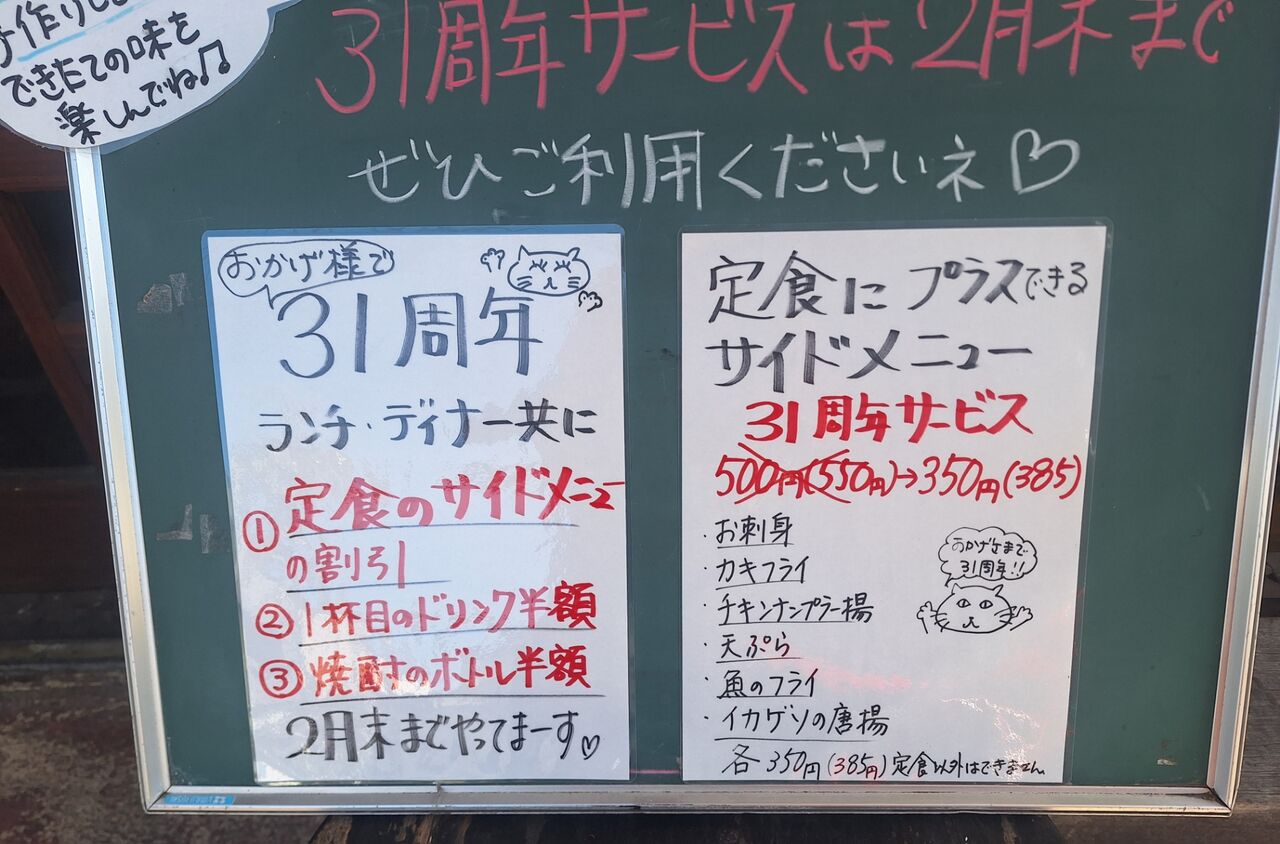 作り
できたての味を
楽しんでね♫
31周年サービスは2月末まで
ぜひご利用くださいネ♡
おかげ様で
31周年
ランチ・ディナー共に
① 定食のサイドメニュー
の割引
② 1杯目のドリンク半額
③ 焼酎のボトル半額
2月末までやってまーす♡
定食にプラスできる
サイドメニュー
31周年サービス
500円(550円)→350円(385)
・お刺身
・カキフライ
・チキンナンプラー揚
・天ぷら
・魚のフライ
・イカゲソの唐揚
おかげさまで
31周年!!
各350円(385円)定食以外はできません